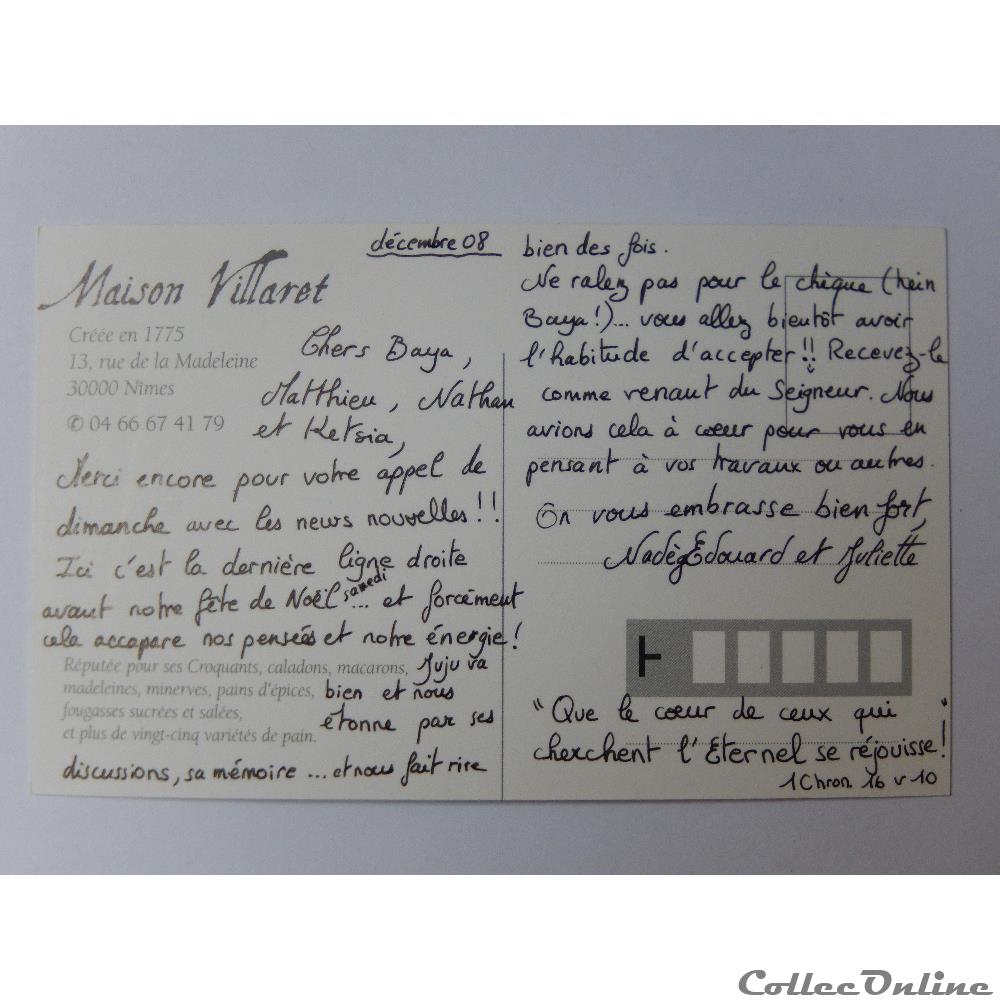 décembre 08
Maison Villaret
Créée en 1775
13, rue de la Madeleine
30000 Nîmes
✆ 04 66 67 41 79
Chers Baya,
Matthieu, Nathan
et Ketsia,
Merci encore pour votre appel de
dimanche avec les news nouvelles !!
Ici c'est la dernière ligne droite
avant notre fête de Noël samedi ... et forcément
cela accapare nos pensées et notre énergie !
Réputée pour ses Croquants, caladons, macarons,
madeleines, minerves, pains d'épices,
fougasses sucrées et salées,
et plus de vingt-cinq variétés de pain.
Juju va
bien et nous
étonne par ses
discussions, sa mémoire ... et nous fait rire
bien des fois.
Ne ralez pas pour le chèque (hein
Baya !)... vous allez bientôt avoir
l'habitude d'accepter !! Recevez-le
comme venant du Seigneur. Nous
avions cela à cœur pour vous en
pensant à vos travaux ou autres.
On vous embrasse bien fort,
Nadèg Edouard et Juliette
"Que le cœur de ceux qui
cherchent l'Eternel se réjouisse !"
1 Chron. 16 v 10
CollecOnline